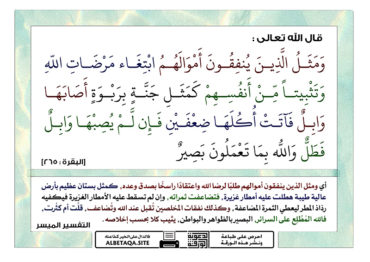 قال الله تعالى :
وَمَثَلُ الَّذِينَ يُنفِقُونَ أَمْوَالَهُمُ ابْتِغَاء مَرْضَاتِ اللّهِ
وَتَثْبِيتاً مِّنْ أَنفُسِهِمْ كَمَثَلِ جَنَّةٍ بِرَبْوَةٍ أَصَابَهَا
وَابِلٌ فَآتَتْ أُكُلَهَا ضِعْفَيْنِ فَإِن لَّمْ يُصِبْهَا وَابِلٌ
فَطَلٌّ وَاللّهُ بِمَا تَعْمَلُونَ بَصِيرٌ
[البقرة : ٢٦٥]
أي ومثل الذين ينفقون أموالهم طلبًا لرضا الله واعتقادًا راسخًا بصدق وعده، كمثل بستان عظيم بأرض
عالية طيبة هطلت عليه أمطار غزيرة، فتضاعفت ثمراته، وإن لم تسقط عليه الأمطار الغزيرة فيكفيه
رذاذ المطر ليعطي الثمرة المضاعفة، وكذلك نفقات المخلصين تُقبل عند الله وتُضاعف، قلَّت أم كثُرت،
فالله المُطَّلع على السرائر، البصير بالظواهر والبواطن، يثيب كلا بحسب إخلاصه.
التفسير الميسر
احرص على طباعة
ونشر هذه الورقة
ALBETAQA.SITE